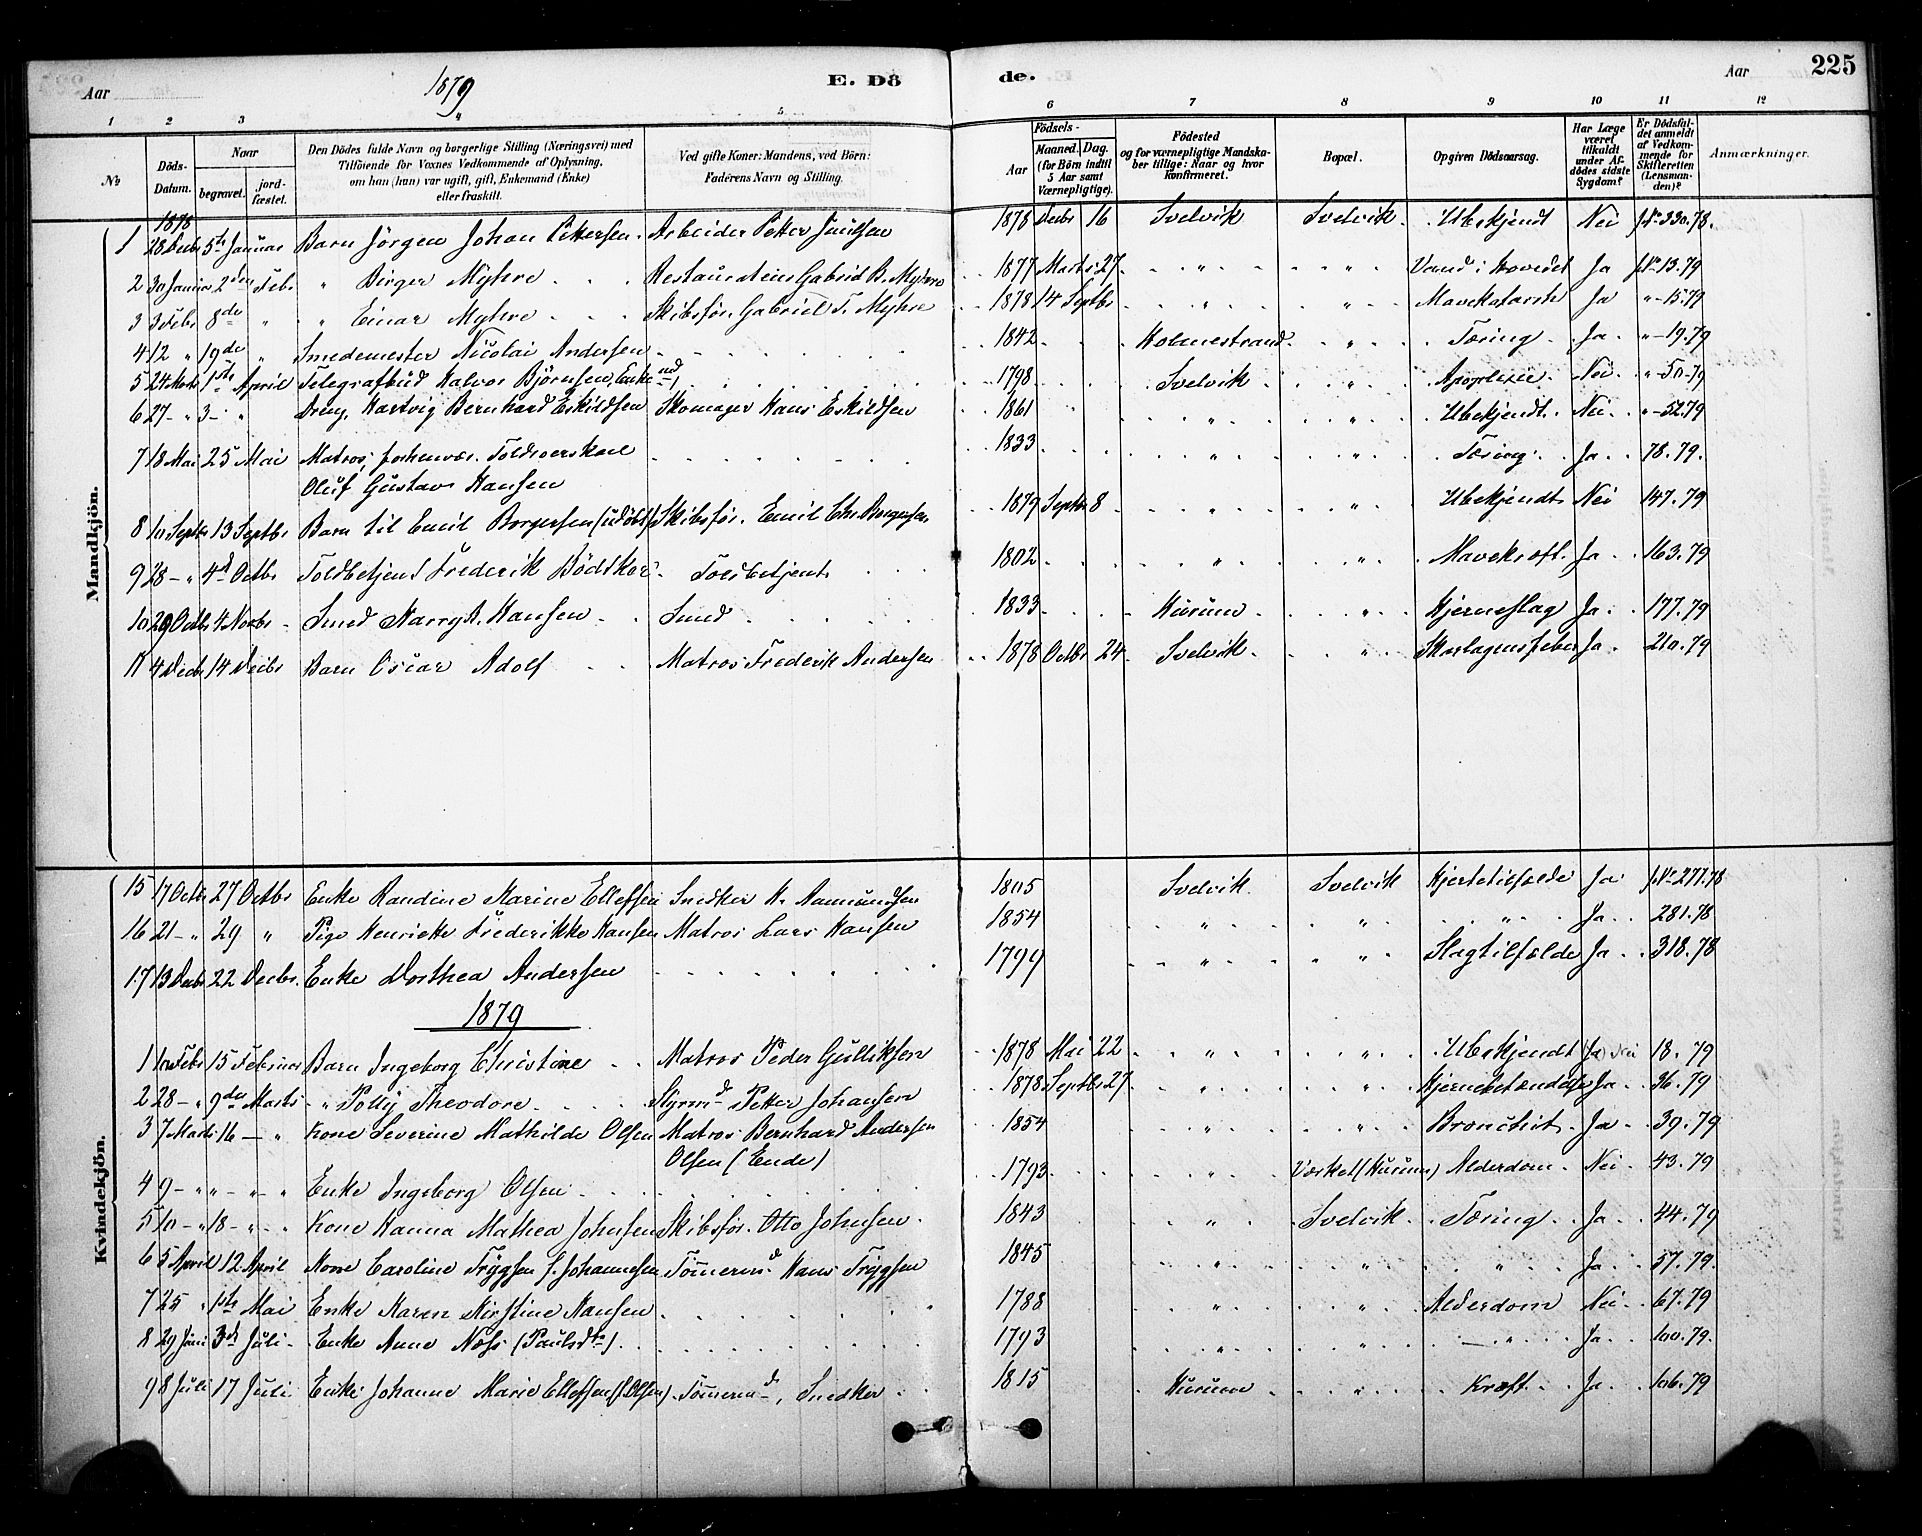 Aar 1879 E. Dö
de. Aar 225
1 2 3 4 5
6 7 8 9 10 11 12
No
Döds-Datum.
Naar
begravet.
jord-fæstet.
Den Dödes fulde Navn og borgerlige Stilling (Næringsvei) med
Tilföiende for Voxnes Vedkommende af Oplysning,
om han (hun) var ugift, gift, Enkemand (Enke)
eller fraskilt.
Ved gifte Koner: Mandens, ved Börn:
Faderens Navn og Stilling.
Födsels-
Aar
Maaned. Dag.
(for Börn indtil
5 Aar samt
Værnepligtige).
Födested
og for værnepligtige Mandska-
ber tillige: Naar og hvor
konfirmeret.
Bopæl.
Opgiven Dödsaarsag.
Har Læge
været
tilkaldt
under Af-
dödes sidste
Sygdom?
Er Dödsfal-
det anmeldt
af Vedkom-
mende for
Skifteretten
(Lensman-
den)?
Anmærkninger.
Mandkjön.
1878
1 28 Decbr 5te Januar Barn Jörgen Johan Pettersen. Arbeider Petter Paulsen 1878 Decbr 16 Svelvik Svelvik Ubekjendt Nei No 330.78.
2 30 Januar 2den Febr " Birger Myhre Gabriel B. Myhre 1877 Marts 27 " " Vand i Hovedet Ja No 13.79
3 3 Febr 8de " " Einar Myhre Skibsför. Gabriel T. Myhre 1878 14 Septbr " " Mavekatarrh Ja " 15.79
4 12 " 19de " Smedemester Nicolai Andersen 1842 Holmestrand " Tæring Ja " 19.79
5 24 Marts 1ste April Telegrafbud Halvor Björnsen, Enkemd 1798 Svelvik " Apoplexie Nei " 50.79
6 27 - " 3 - " Dreng, Hartvig Bernhard Eskildsen Skomager Hans Eskildsen 1861 " " Ubekjendt Nei " 52.79
7 18 Mai 25 Mai Matros, forhenvær. Toldroerskarl 1833 " " Tæring Ja 78.79.
Oluf Gustav Hansen
8 10 Septbr 13 Septbr Barn til Emil Borgersen (udöbt) Skibsför. Emil Chr. Borgersen 1879 Septbr 8 " " Ubekjendt Nei 147.79
9 28 - " 4d Octbr Toldbetjent Frederik Bödtker Toldbetjent 1802 " " Mavekræft Ja 163.79
10 29 Octbr 4 Novbr Smed Harry R. Hansen Smed 1833 Hurum " Hjerneslag Ja 177.79
11 4 Decbr 14 Decbr Barn Oscar Adolf Matros Frederik Andersen 1878 Octbr 24 Svelvik " Skarlagensfeber Ja 210.79
Kvindekjön.
15 17 Octbr 27 Octbr Enke Randine Marine Ellefsen Snedker H. Aamundsen 1805 Svelvik Svelvik Hjertetilfælde Ja No 277.78
16 21 - " 29 " Pige Henriette Frederikke Hansen Matros Lars Hansen 1854 " " " Ja 281.78
17 13 Decbr 22 Decbr. Enke Dorthea Andersen 1799 " " Slagtilfælde Ja 318.78
1879
1 10 Febr 15 Februar Barn Ingeborg Christine Matros Peder Gulliksen 1878 Mai 22 " " Ubekjendt (Ja) Nei 18.79
2 28 - " 9de Marts " Polly Theodore Styrmd Petter Johansen 1878 Septbr 27 " " Hjernebetændelse Ja 36.79
3 7 Marts 16 - " Kone Severine Mathilde Olsen Matros Bernhard Andersen 1854 " " Bronchit Ja 39.79
Olsen (Ende)
4 9 - " " - " Enke Ingeborg Olsen 1793 " (Hurum) Alderdom Nei 43.79
5 10 - " 18 - " Kone Hanna Mathea Johnsen Skibsför. Otto Johnsen 1843 " Svelvik Tæring Ja 44.79
6 5 April 12 April Kone Caroline Trygsen f. Johannesen Tömermd Hans Trygsen 1845 " " " Ja 57.79.
7 25 " 1ste Mai Enke Karen Kirstine Hansen 1788 " " Alderdom Nei 67.79
8 29 Juni 3d Juli Enke Anne Næss (Paulsdtr) 1793 " " " Ja 100.79.
9 8 Juli 17 Juli Enke Johanne Marie Ellefsen (f. Olsen) Tömermd, Snedker 1815 Hurum " Kræft Ja 106.79